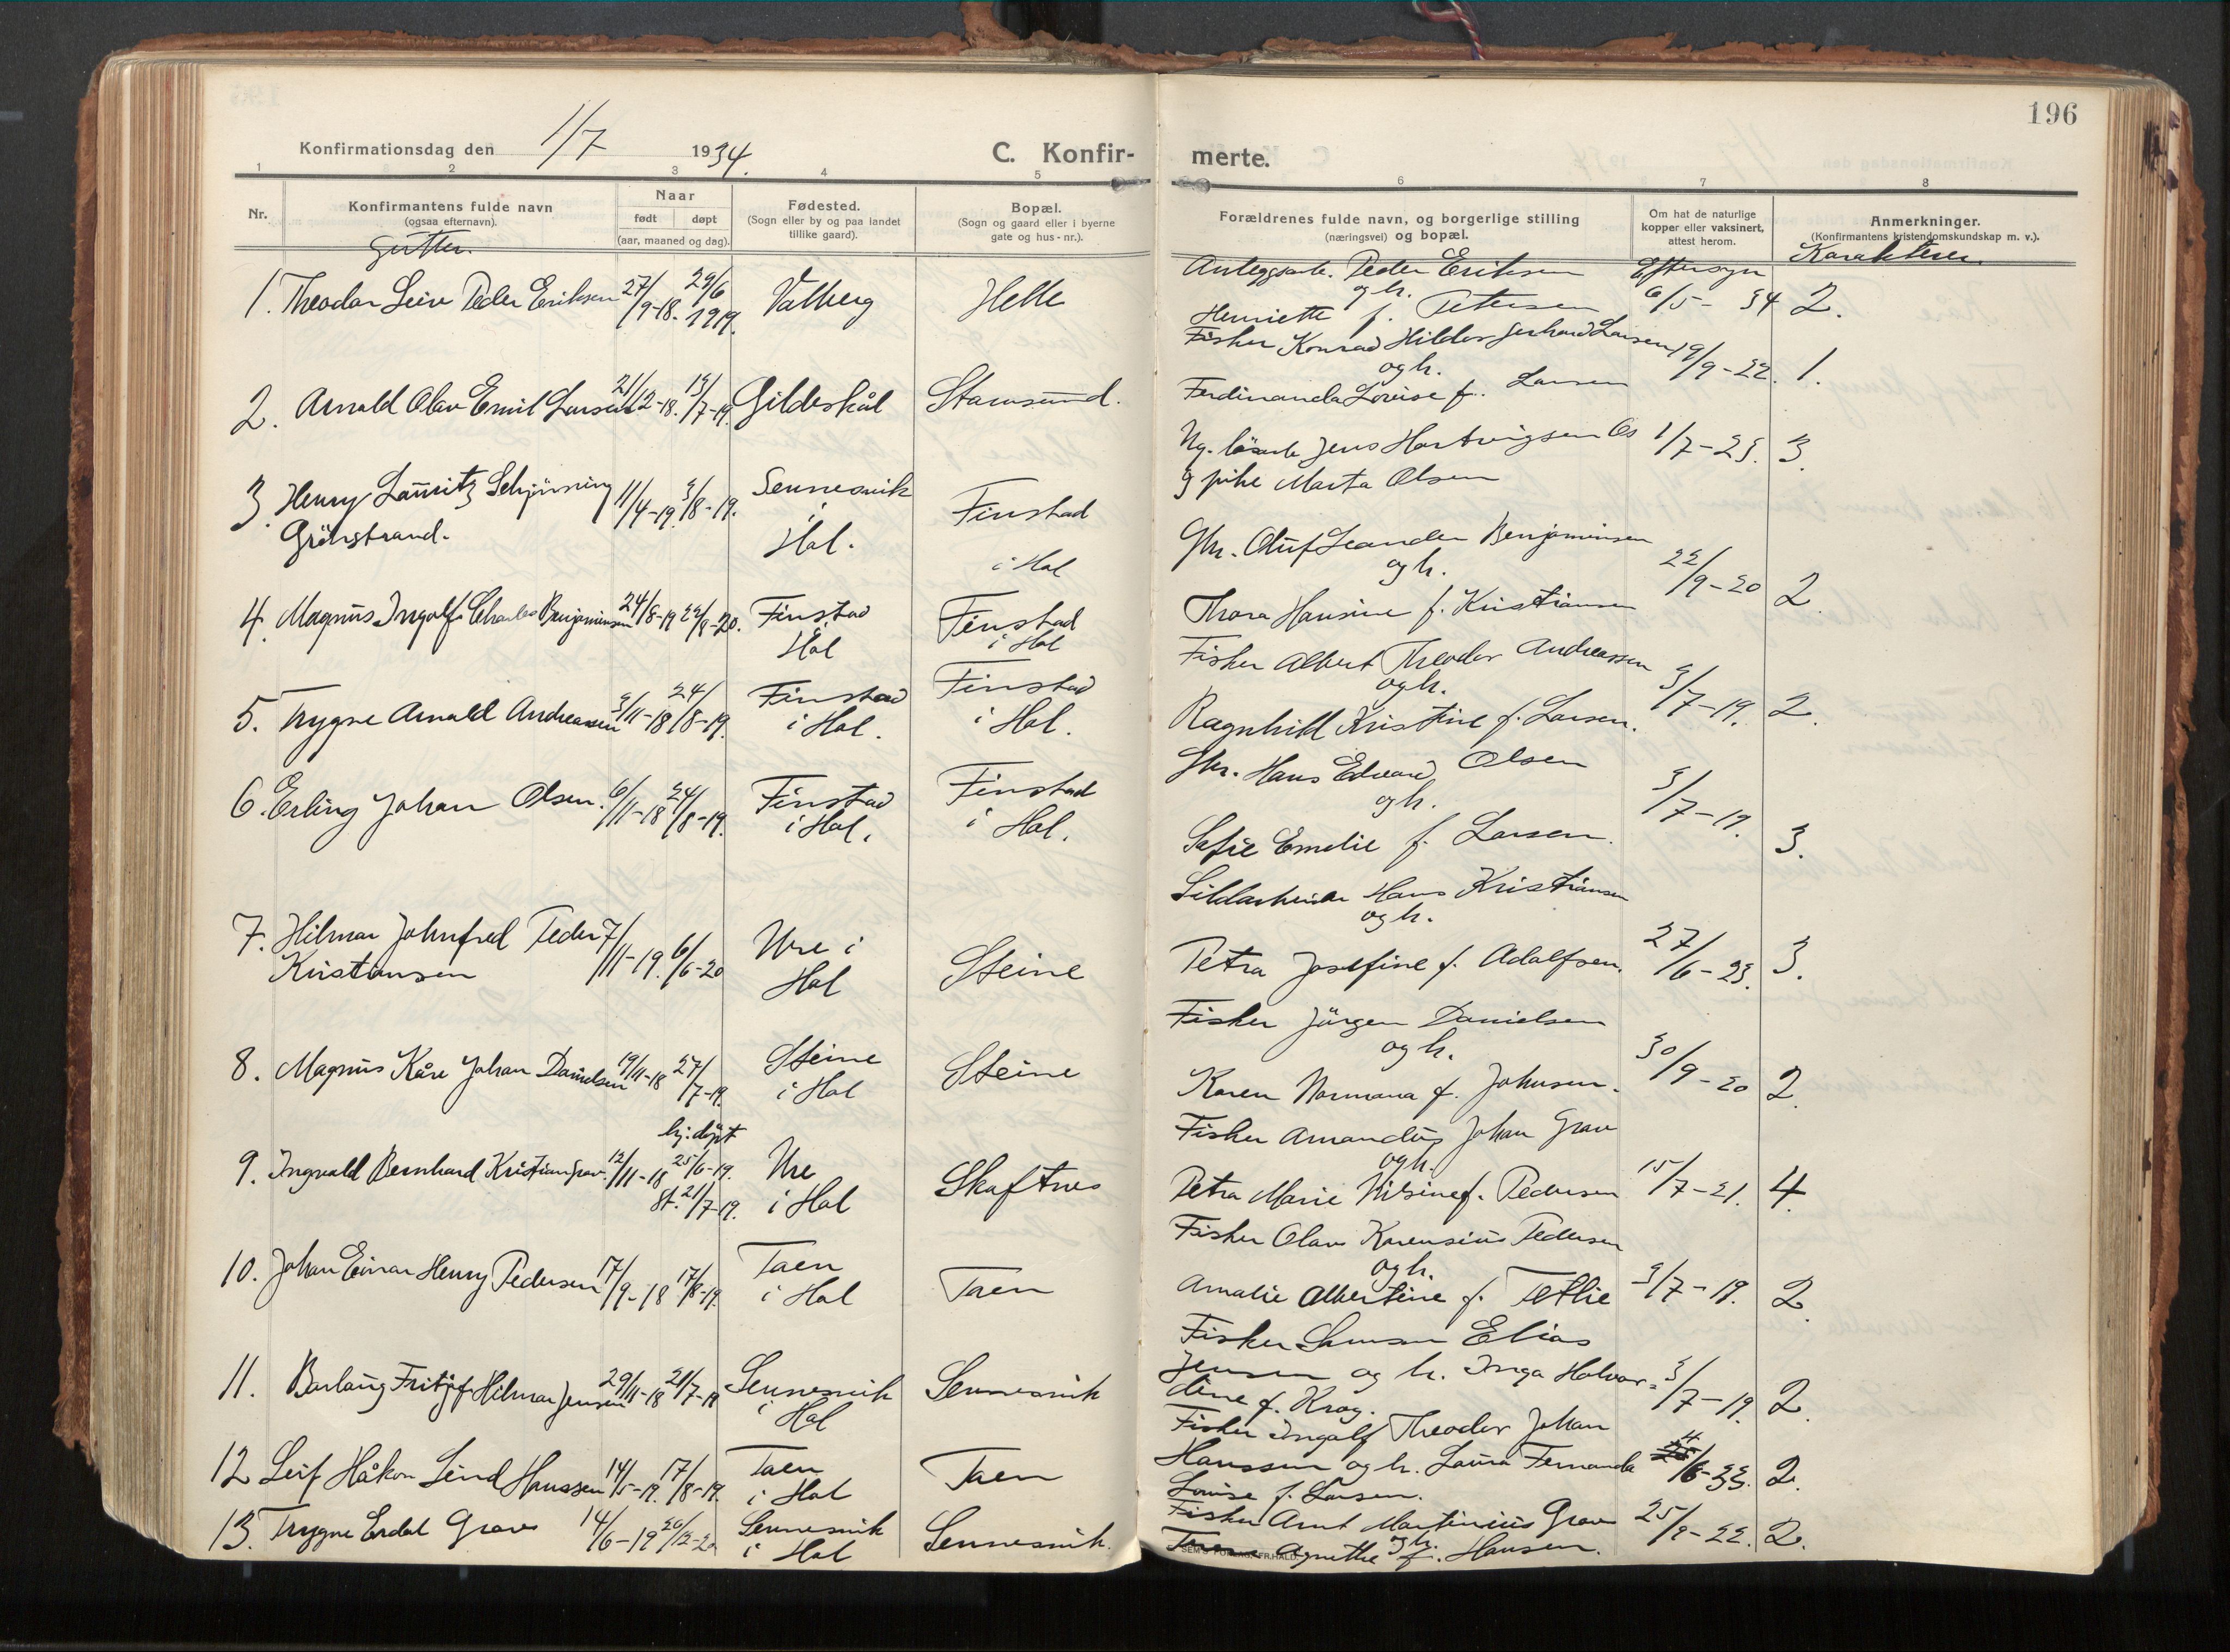 196
Konfirmationsdag den 1/7 1934.
C. Konfir-
merte.
1 2 3 4 5 6 7 8
Nr.
Konfirmantens fulde navn
(ogsaa efternavn).
Gutter.
Naar
født døpt
(aar, maaned og dag).
Fødested.
(Sogn eller by og paa landet
tillike gaard).
Bopæl.
(Sogn og gaard eller i byerne
gate og hus-nr.).
Forældrenes fulde navn, og borgerlige stilling
(næringsvei) og bopæl.
Om hat de naturlige
kopper eller vaksinert,
attest herom.
Anmerkninger.
(Konfirmantens kristendomskundskap m. v.).
Karakterer.
1. Theodor Leiv Peder Eriksen 27/9-18. 29/6 1919. Valberg Helle
Anleggsarb. Peder Eriksen
og h.
Henriette f. Petersen
Eftersyn
6/5-34 2.
2. Arnold Olav Emil Larsen 21/12-18. 13/7-19. Gildeskål Stamsund.
Fisker Konrad Hildor Gerhard Larsen
og h.
Ferdinanda Lovise f. Larsen
19/9-22. 1.
3. Henry Lauritz Schjönning
Grönstrand.
11/4-19. 3/8-19. Sennesvik
i
Hol.
Finstad
i Hol
Ug. løsarb Jens Hartvigsen Os
g pike Marta Olsen
1/7-23. 3.
4. Magnus Ingolf Charles Benjaminsen 24/8-19 22/8-20. Finstad
Hol
Finstad
i Hol
Gbr. Oluf Leander Benjaminsen
og h.
Thora Hansine f. Kristiansen
22/9-20 2.
5. Trygve Arnold Andreassen 3/11-18 24/8-19. Finstad
i Hol.
Finstad
i Hol.
Fisker Albert Theodor Andreassen
og h.
Ragnhild Kristine f. Larsen.
3/7-19. 2.
6. Erling Johan Olsen. 6/11-18 24/8-19. Finstad
i Hol.
Finstad
i Hol.
Gbr. Hans Edvard Olsen
og h.
Sofie Emelie f. Larsen.
3/7-19. 3.
7. Hilmar Johnfred Peder
Kristiansen
7/11-19. 6/6-20 Ure i
Hol
Steine
Hans Kristiansen
og h.
Petra Josefine f. Adolfsen.
27/6-23. 3.
8. Magnus Kåre Johan Danielsen 19/11-18 27/7-19. Steine
i Hol
Steine
Fisker Jörgen Danielsen
og h.
Karen Normana f. Johnsen.
30/9-20 2.
9. Ingvald Bernhard Kristian Grav. 12/11-18 hj. döpt
25/6-19.
St. 21/7-19.
Ure
i Hol
Skaftnes
Fisker Amandus Johan Grav
og h.
Petra Marie f. Pedersen
15/7-21. 4.
10. Johan Einar Henry Pedersen 17/9-18 17/8-19. Taen
i Hol
Taen
Fisker Olav Karensius Pedersen
og h.
Amalie Albertine f. Tetlie
3/7-19. 2.
11. Barlaug Fritjof Hilmar Jensen 29/11-18 21/7-19 Sennesvik
i Hol
Sennesvik
Fisker Samson Elias
Jensen og h. Inga Halvar-
dine f. Krog.
3/7-19. 2.
12 Leif Håkon Lind Hanssen 14/5-19. 17/8-19. Taen
i Hol
Taen
Fisker Ingolf Theodor Johan
Hanssen og h. Laura Fernanda
Louise f. Larsen.
4/6-33. 2.
13. Trygve Erdal Grav 14/6-19 26/12-20 Sennesvik
i Hol
Sennesvik.
Fisker Arnt Martinius Grav
og h.
Agnethe f. Hansen.
25/9-22. 2.